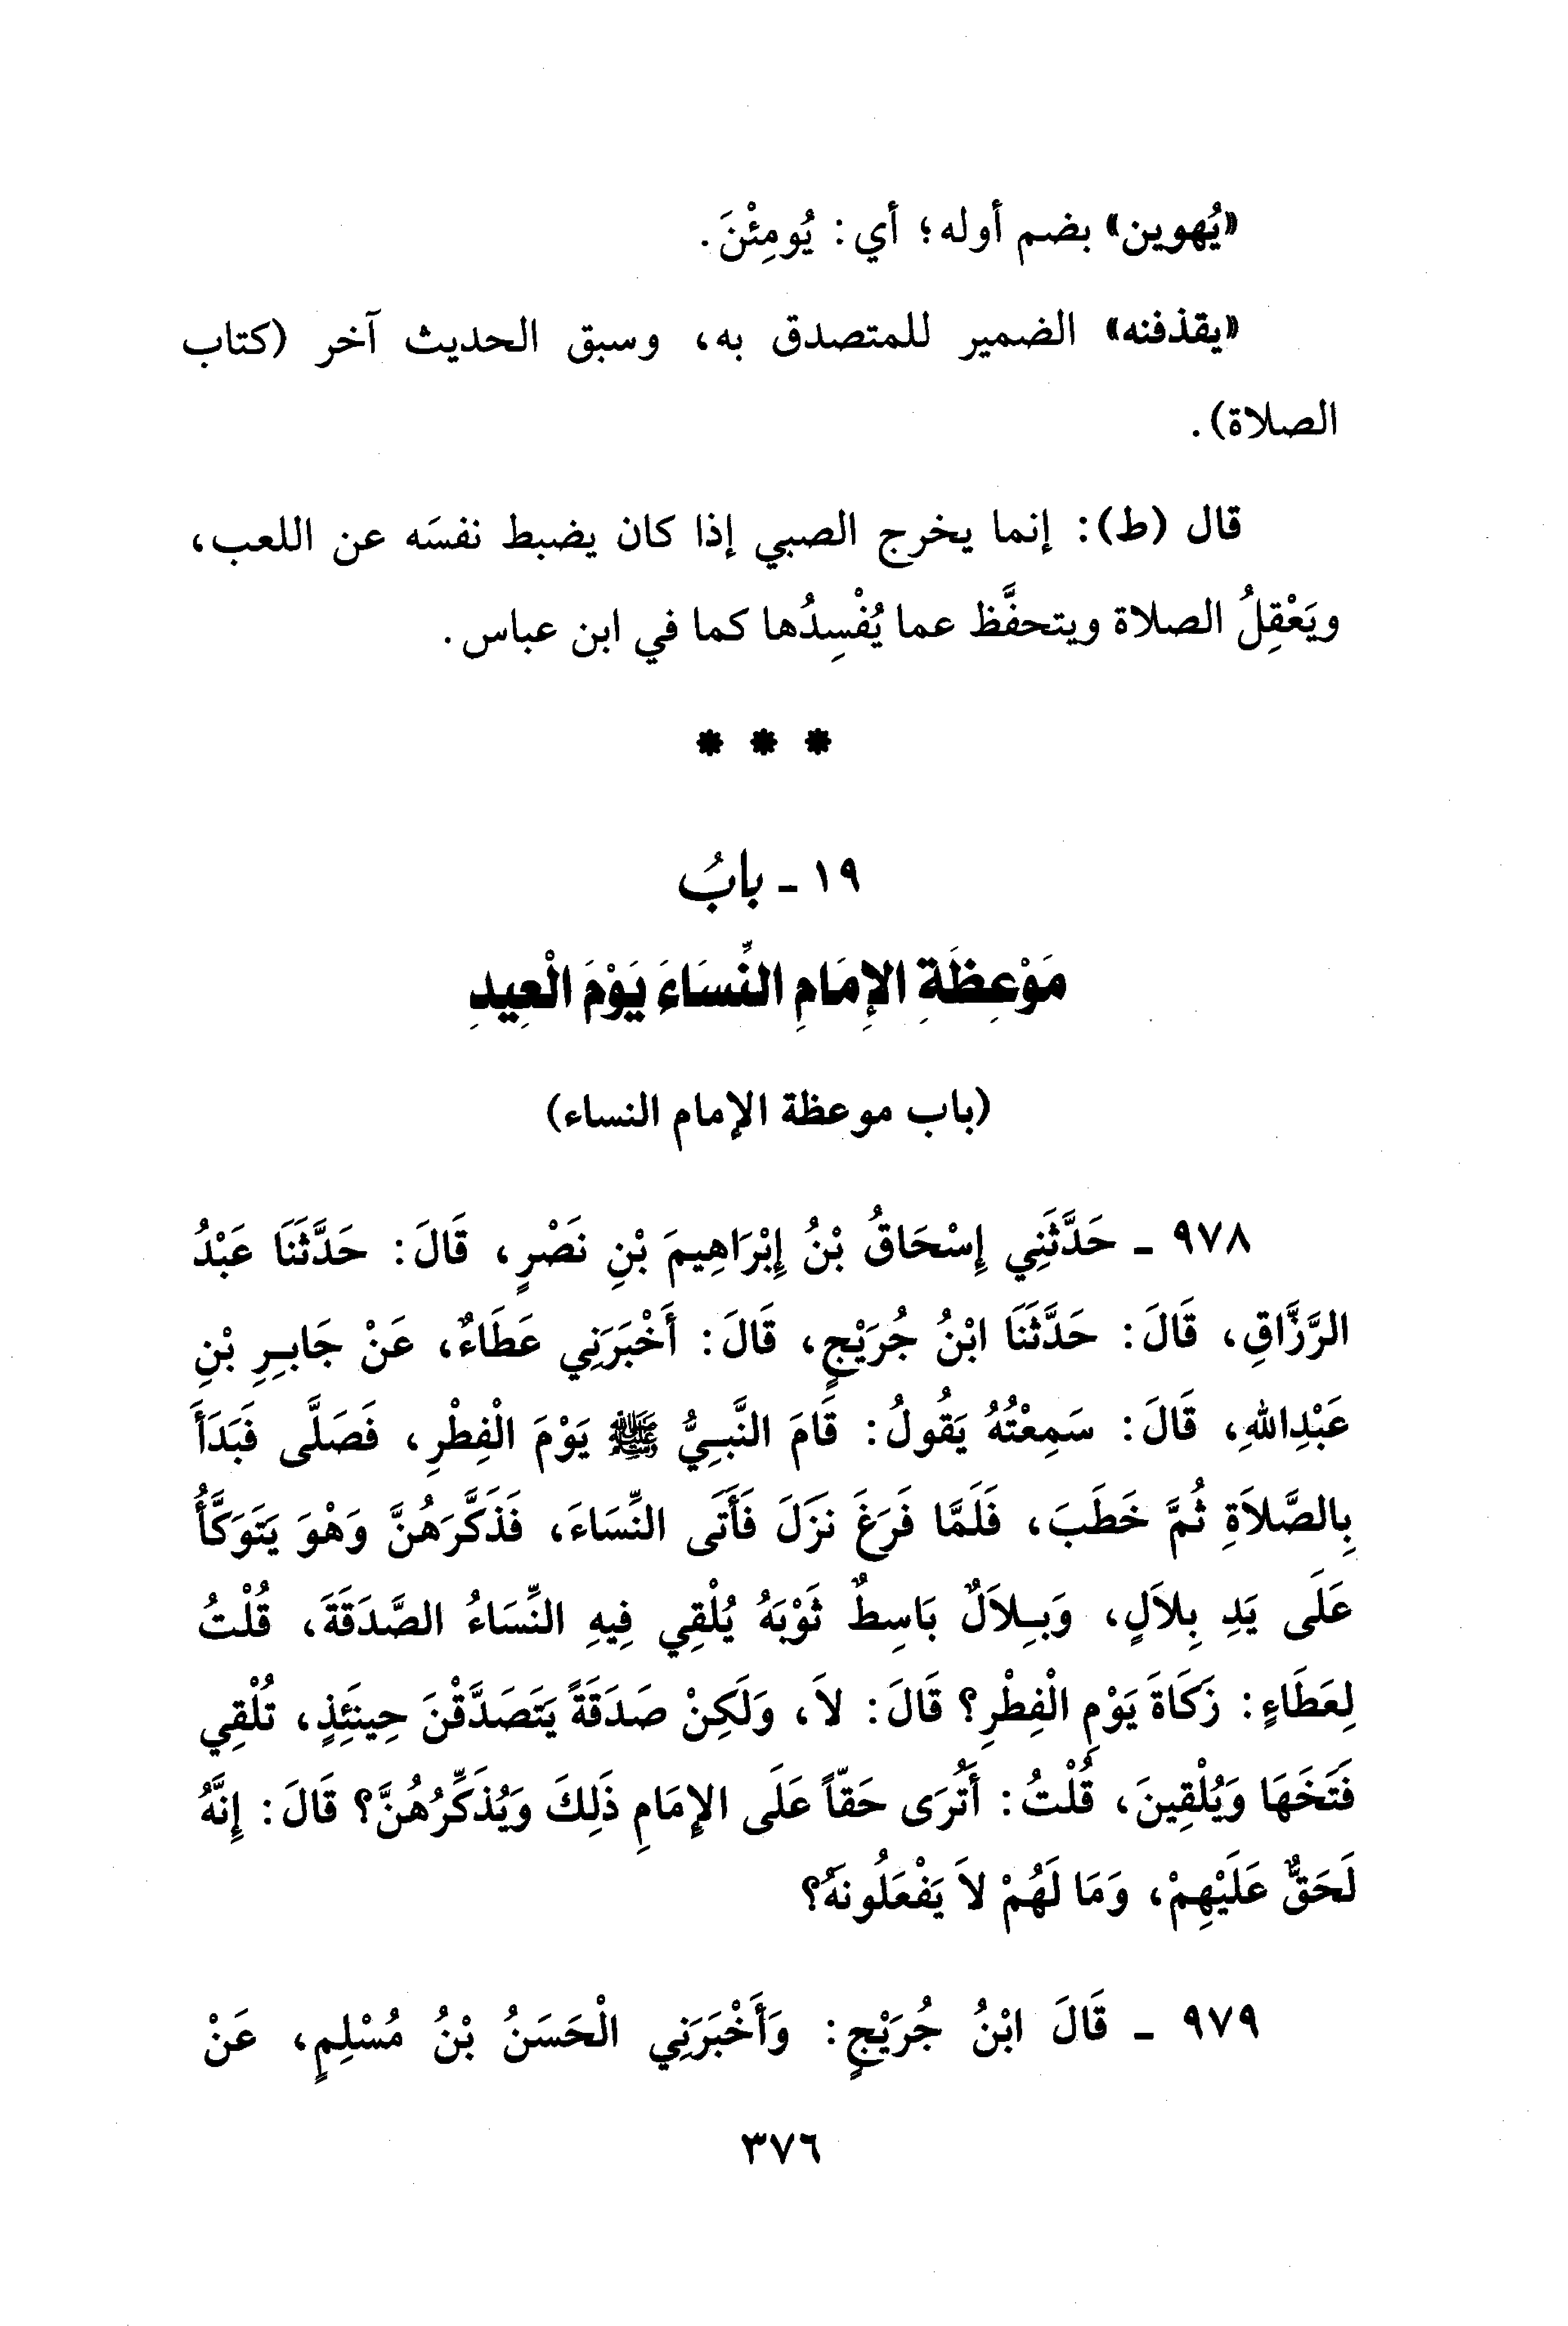 «يُهوين» بضم أوله؛ أي: يُومِئْنَ.
«يقذفنه» الضمير للمتصدق به، وسبق الحديث آخر (كتاب
الصلاة).
قال (ط): إنما يخرج الصبي إذا كان يضبط نفسَه عن اللعب،
ويَعْقِلُ الصلاة ويتحفَّظ عما يُفْسِدُها كما في ابن عباس.
* * *
١٩ - بابُ
مَوْعِظَةِ الإِمَامِ النِّسَاءَ يَوْمَ الْعِيدِ
(باب موعظة الإمام النساء)
٩٧٨ - حَدَّثَنِي إِسْحَاقُ بْنُ إِبْرَاهِيمَ بْنِ نَصْرٍ، قَالَ: حَدَّثَنَا عَبْدُ
الرَّزَّاقِ، قَالَ: حَدَّثَنَا ابْنُ جُرَيْجٍ، قَالَ: أَخْبَرَنِي عَطَاءٌ، عَنْ جَابِرِ بْنِ
عَبْدِاللهِ، قَالَ: سَمِعْتُهُ يَقُولُ: قَامَ النَّبِيُّ ﷺ يَوْمَ الْفِطْرِ، فَصَلَّى فَبَدَأَ
بِالصَّلاَةِ ثُمَّ خَطَبَ، فَلَمَّا فَرَغَ نَزَلَ فَأَتَى النِّسَاءَ، فَذَكَّرَهُنَّ وَهْوَ يَتَوَكَّأُ
عَلَى يَدِ بِلاَلٍ، وَبِلاَلٌ بَاسِطٌ ثَوْبَهُ يُلْقِي فِيهِ النِّسَاءُ الصَّدَقَةَ، قُلْتُ
لِعَطَاءٍ: زَكَاةَ يَوْمِ الْفِطْرِ؟ قَالَ: لاَ، وَلَكِنْ صَدَقَةً يَتَصَدَّقْنَ حِينَئِذٍ، تُلْقِي
فَتَخَهَا وَيُلْقِينَ، قُلْتُ: أَتُرَى حَقّاً عَلَى الإِمَامِ ذَلِكَ وَيُذَكِّرُهُنَّ؟ قَالَ: إِنَّهُ
لَحَقٌّ عَلَيْهِمْ، وَمَا لَهُمْ لاَ يَفْعَلُونَهُ؟
٩٧٩ - قَالَ ابْنُ جُرَيْجٍ: وَأَخْبَرَنِي الْحَسَنُ بْنُ مُسْلِمٍ، عَنْ
٣٧٦